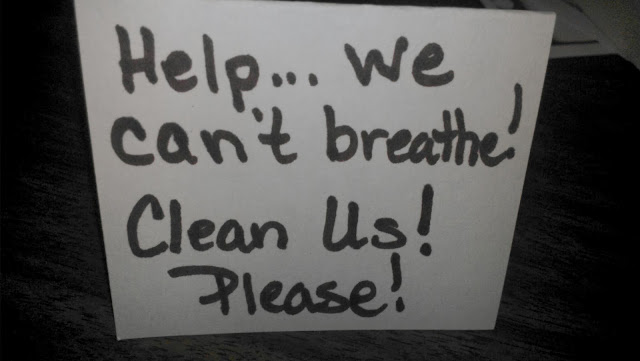 Help... we
can't breathe!
Clean Us!
Please!